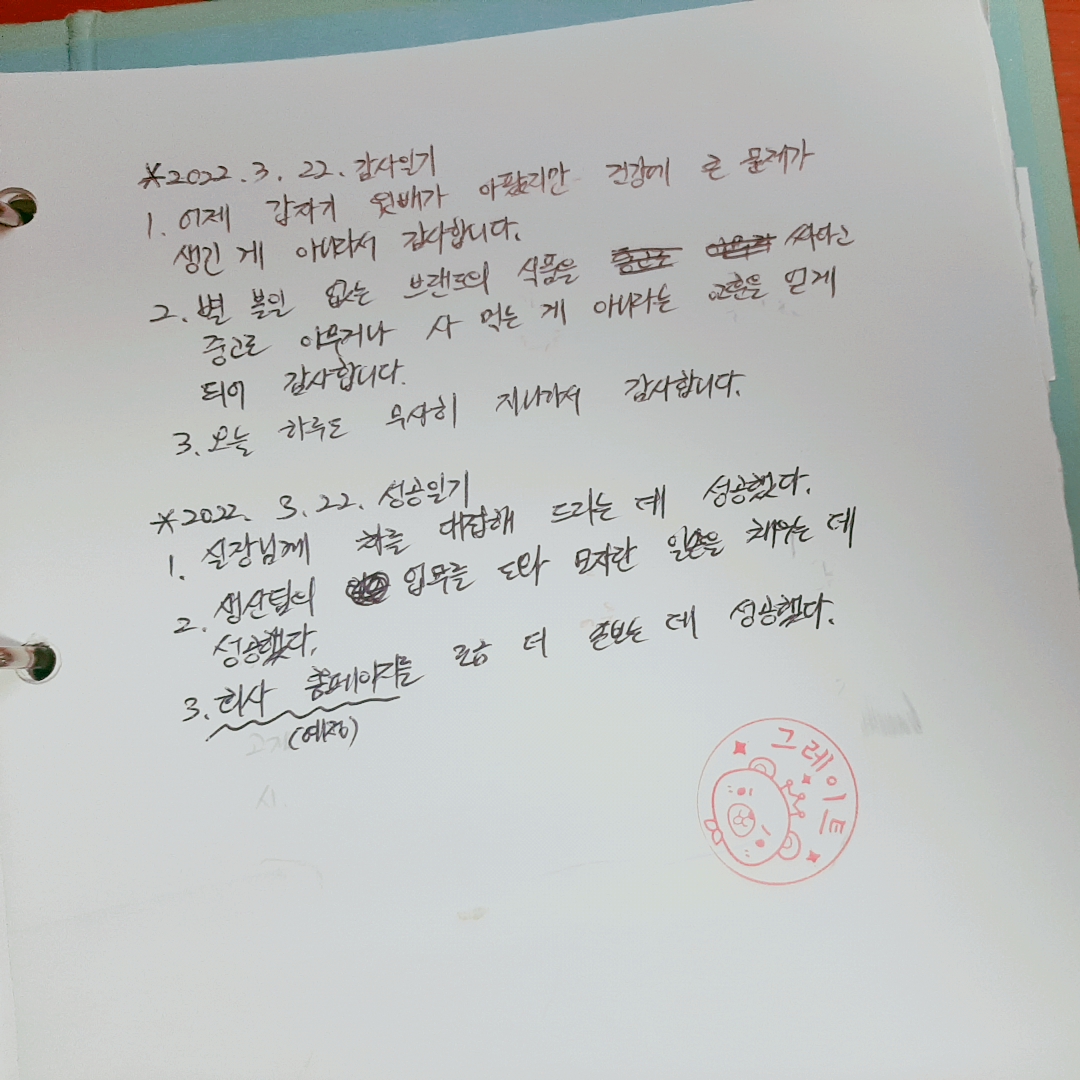 *2022.3.22.감사일기
1. 어제 갑자기 윗배가 아팠지만 건강에 큰 문제가
생긴 게 아니라서 감사합니다.
2. 별 볼일 없는 브랜드의 식품을 싸다고
중고로 아무거나 사 먹는 게 아니라는 교훈을 얻게
되어 감사합니다.
3. 오늘 하루도 무사히 지나가서 감사합니다.
*2022. 3. 22. 성공일기
1. 실장님께 차를 대접해 드리는 데 성공했다.
2. 생산팀의 업무를 도와 모자란 일손을 채우는 데
성공했다.
3. 회사 홈페이지를 조금 더 손보는 데 성공했다.
(예정)
그레이트